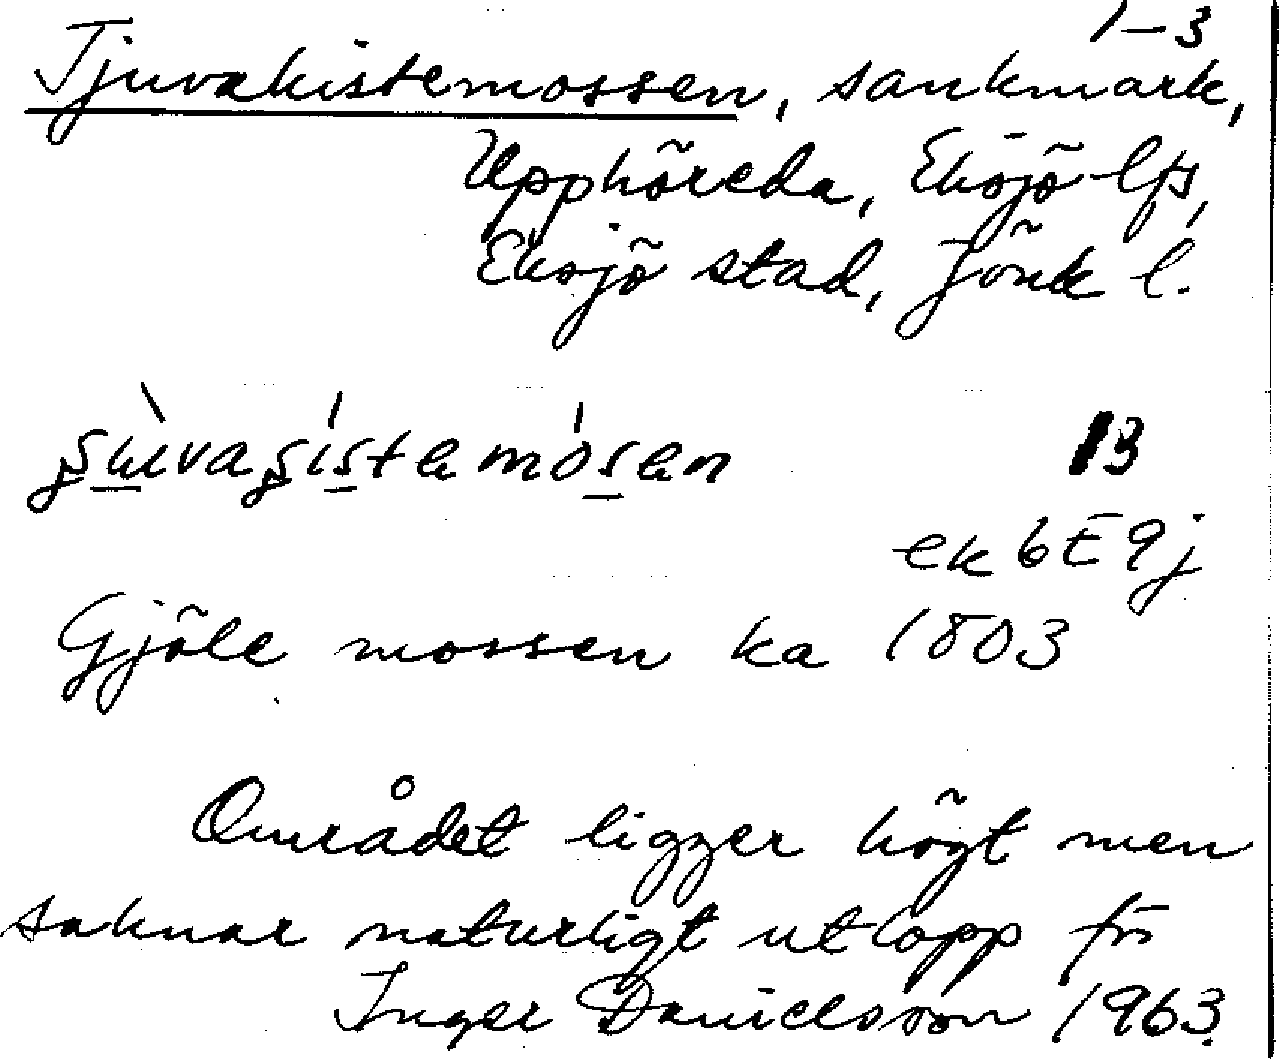 1-3
Tjuvakistemossen, sankmark,
Upphöreda, Eksjö lfs,
Eksjö stad, Jönk l.
13
ek 6E9j
Gjöle mossen ka 1803
Området ligger högt men
saknar naturligt utlopp
Inger Danielsson 1963